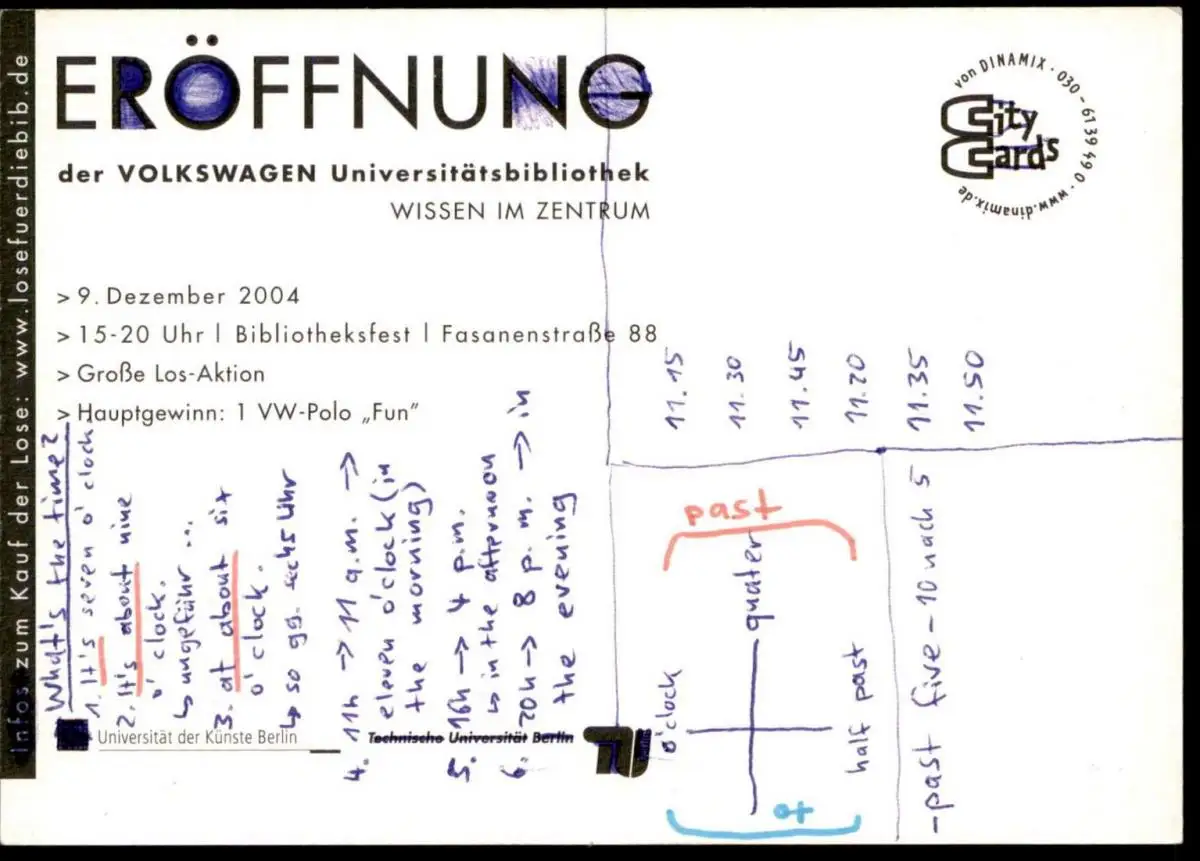 ERÖFFNUNG
der VOLKSWAGEN Universitätsbibliothek
WISSEN IM ZENTRUM
> 9. Dezember 2004
> 15-20 Uhr | Bibliotheksfest | Fasanenstraße 88
> Große Los-Aktion
> Hauptgewinn: 1 VW-Polo „Fun”
Infos zum Kauf der Lose: www.losefuerdiebib.de
von DINAMIX · 030 - 61 39 49 0 · www.dinamix.de
City
Cards
Universität der Künste Berlin
Technische Universität Berlin
What's the time?
1. It's seven o'clock.
2. It's about nine
o'clock.
↳ ungefähr ...
3. at about six
o'clock.
↳ so gg. sechs Uhr
4. 11h → 11 a.m. →
eleven o'clock (in
the morning)
5. 16h → 4 p.m.
↳ in the afternoon
6. 20h → 8 p.m. → in
the evening
11.15
11.30
11.45
11.20
11.35
11.50
past
quater
o'clock
half past
ot
- past five - 10 nach 5